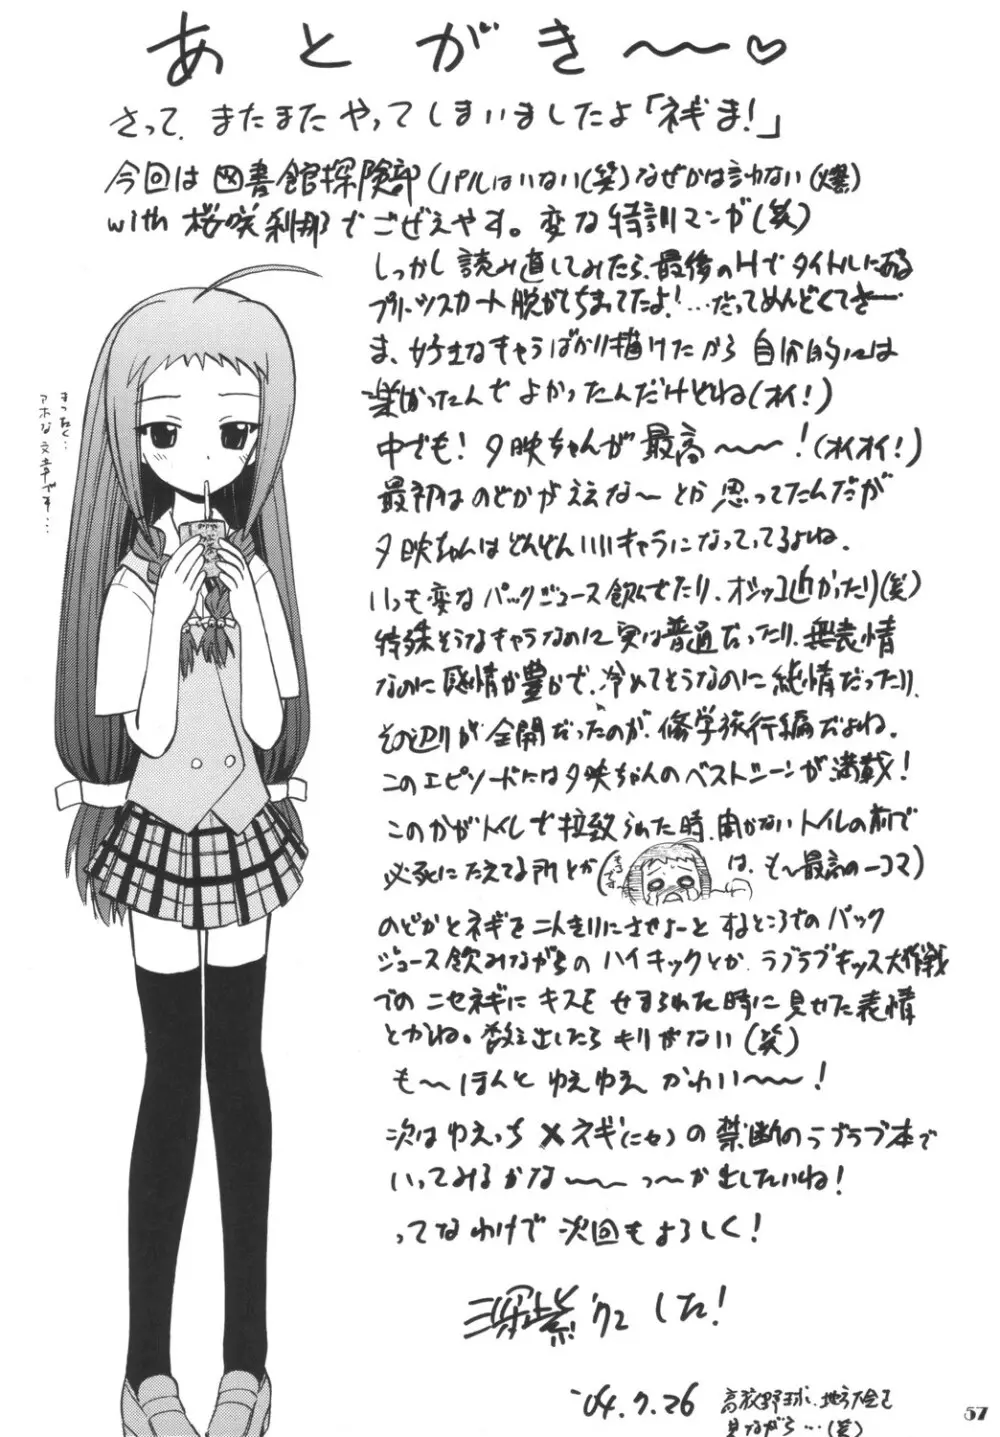 あとがき〜〜♡
さって、またまたやってしまいましたよ「ネギま!」
今回は図書館探険部(パルはいない(笑)なぜかは訊かない(爆)
with 桜咲刹那でござえやす。変な特訓マンガ(笑)
しっかし読み直してみたら、最後のHでタイトルにある
プリーツスカート脱がせちまってたよ!…だってめんどくてさー
ま、好きなキャラばかり描けたから自分的には
楽かったんでよかったんだけどね(オイ!)
中でも!夕映ちゃんが最高〜〜!(オイオイ!)
最初はのどかがええな〜とか思ってたんだが
夕映ちゃんはどんどんいいキャラになってってるよね.
いつも変なパックジュース飲んでたり、オシッコ近かったり(笑)
特殊そうなキャラなのに実は普通だったり、無表情
なのに感情が豊かで、冷めてそうなのに純情だったり、
その辺りが全開だったのが、修学旅行編だよね.
このエピソードには夕映ちゃんのベストシーンが満載!
このかがトイレで拉致られた時、開かないトイレの前で
必死にたえてる所とか( は、も〜最高の一コマ)
のどかとネギを二人きりにさせよーとするところでのパック
ジュース飲みながらのハイキックとか、ラブラブキッス大作戦
でのニセネギにキスをせまられた時に見せた表情
とかね。数え出したらキリがない(笑)
も〜ほんとゆえゆえかわい〜〜!
次はゆえっち×ネギ(ニセ)の禁断のラブラブ本で
いってみるかな〜〜っ〜か出したいね!
ってなわけで次回もよろしく!
深紫でした!
'04.7.26
高校野球、地方大会を
見ながら…(笑)
まったく…
アホな文章です…
57